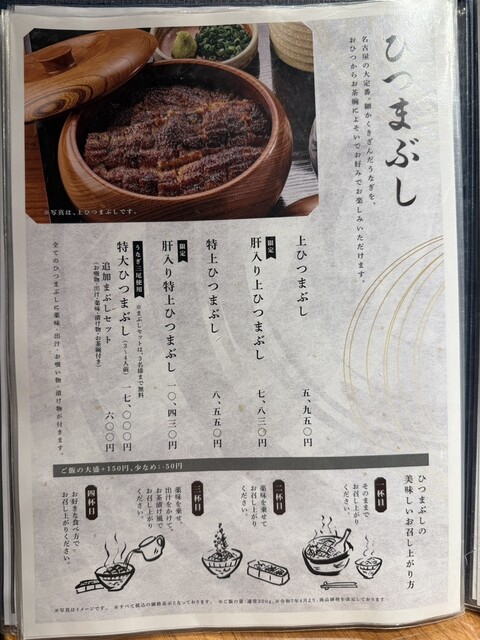 ひつまぶし
名古屋の大定番。細かくきざんだうなぎを、
おひつからお茶碗によそいでお好みでお楽しみいただけます。
※写真は、上ひつまぶしです。
上ひつまぶし 五、九五〇円
限定
肝入り上ひつまぶし 七、八三〇円
特上ひつまぶし 八、五五〇円
限定
肝入り特上ひつまぶし 一〇、四三〇円
うなぎ三尾使用
※まぶしセットは、3名様まで無料
特大ひつまぶし(3〜4人前) 一七、〇〇〇円
追加まぶしセット 六〇〇円
(お吸物・出汁・薬味・漬け物・お茶碗付き)
全てのひつまぶしに薬味、出汁・お吸い物・漬け物が付きます。
ご飯の大盛+150円、少なめ:-50円
ひつまぶしの
美味しいお召し上がり方
一杯目
そのままで
お召し上がり
ください。
二杯目
薬味を乗せて
お召し上がり
ください。
三杯目
薬味を乗せ、
出汁をかけて、
お茶漬け風で
お召し上がり
ください。
四杯目
お好きな食べ方で
お召し上がりください。
※写真はイメージです。 ※すべて税込の価格表示となっております。 ※ご飯の量:通常300g、※令和7年4月より、商品価格を改定しております